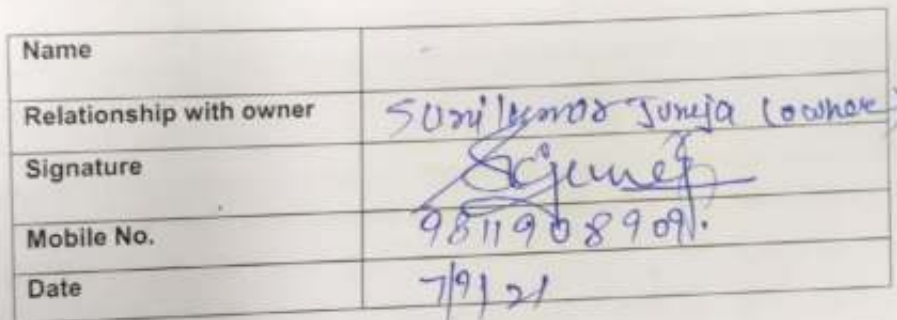 Name
Relationship with owner Sunil kumar Juneja (owner)
Signature SJuneja
Mobile No. 9811908909.
Date 7/9/21